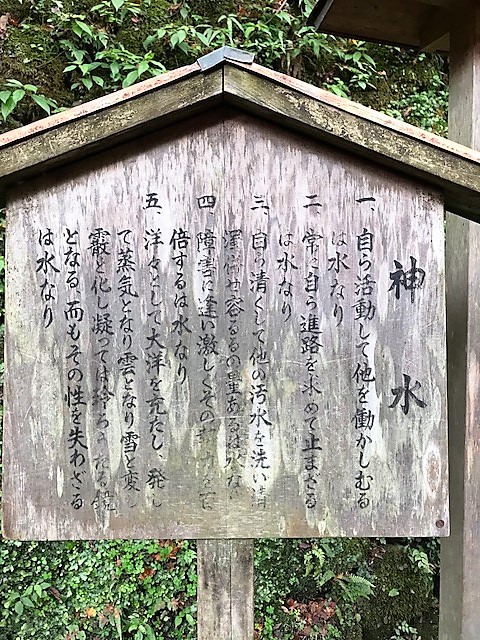 神水
一、自ら活動して他を働かしむる
は水なり
二、常に自ら進路を求めて止まざる
は水なり
三、自ら清くして他の汚水を洗い清
濁併せ容るるの量あるは水なり
四、障害に逢い激しくその力を百
倍するは水なり
五、洋々として大洋を充たし、発し
て蒸気となり雲となり雪と変し
霰と化し凝っては玲ろうたる鏡
となる、而もその性を失わざる
は水なり